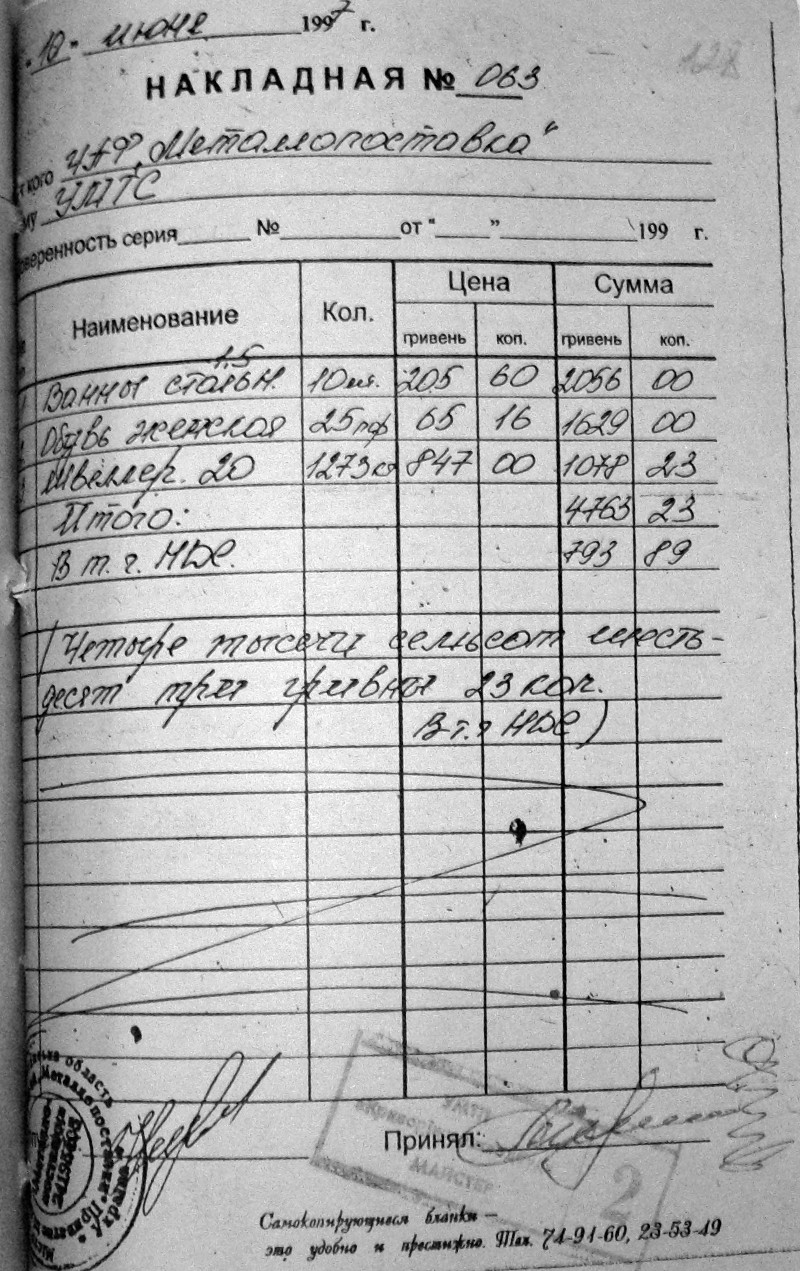 "10" июня 1997 г.
128
НАКЛАДНАЯ № 063
т кого ЧПФ „Металлопоставка"
му УМТС
веренность серия № от " " 199 г.
Наименование Кол. Цена Сумма
гривень коп. гривень коп.
1.5
1 Ванны стальн. 10 шт. 205 60 2056 00
2 Обувь женская 25 пар 65 16 1629 00
3 Швеллер. 20 1273 кг 847 00 1078 23
Итого: 4763 23
В т. ч. НДС. 793 89
(Четыре тысячи семьсот шесть-
десят три гривны 23 коп.
В т.ч НДС)
Принял:
область
Металлопоставка
Україна
МАЙСТЕР
2
Самокопирующиеся бланки –
это удобно и престижно. Тел. 74-91-60, 23-53-49